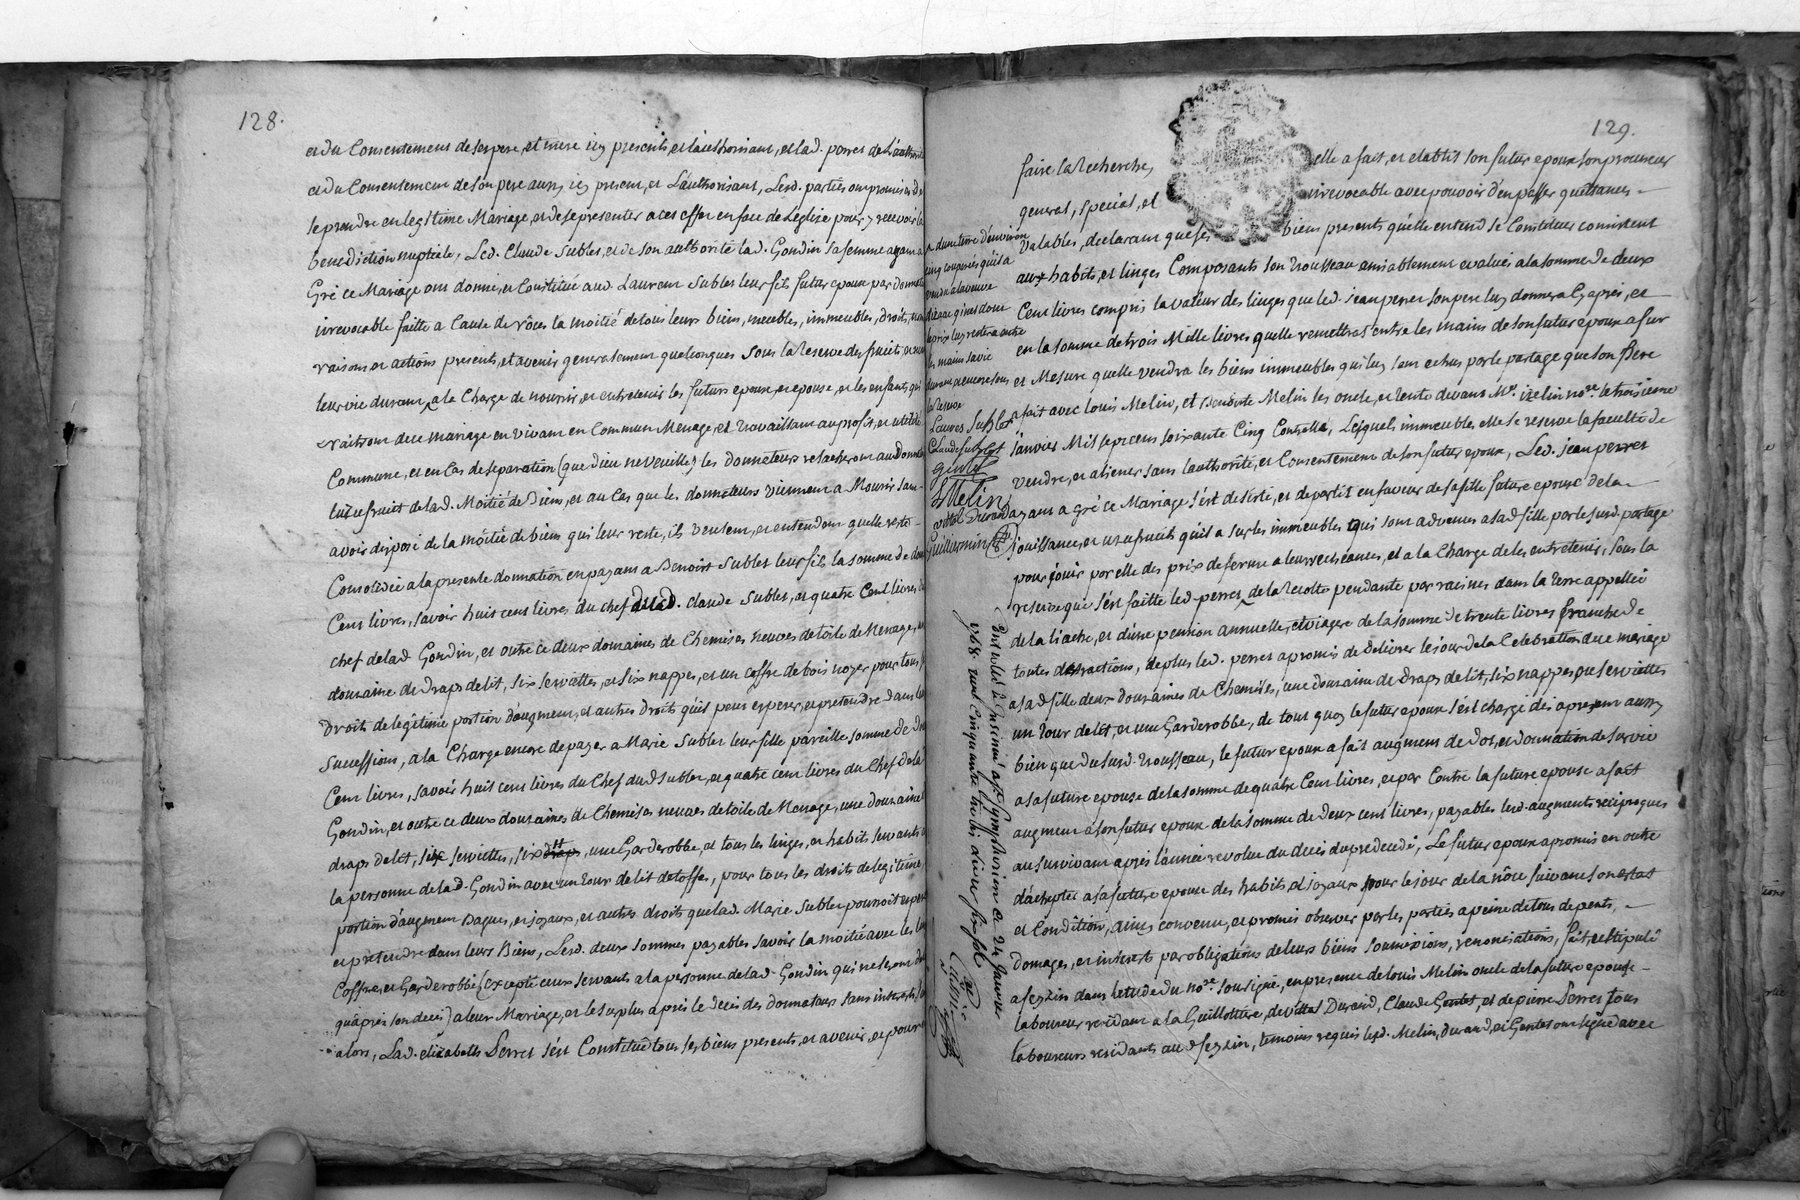 128.
et du Consentement de ses pere, et mere icy presents, et l'authorisant, et lad. perret de L'authorité
et du Consentement de son pere aussy icy present, et L'authorisant, Lesd. parties ont promis de
se prendre en legitime Mariage, et de se presenter a cet effet en face de L'eglize pour y recevoir la
benediction nuptiale, Led. Claude Sublet, et de son authorité lad. Gondin sa femme ayant a
Gré ce Mariage ont donné, et Constitué aud. Laurent Sublet leur fils futur epoux par donation
irrevocable faitte a Cause de nôces la moitié de tous leurs biens, meubles, immeubles, droits, noms
raisons et actions presents, et avenir generalement quelconques sous la Reserve des fruits
leur vie durant, a la Charge de nourrir, et entretenir les futurs epoux, et epouse, et les enfants qui
naitront de ce mariage en vivant en Commun Menage, et travaillant au profit, et utilité
Commune, et en Cas de separation (que dieu ne veuille) les donnateurs relacheront au donnataire
l'usufruit de lad. Moitié de Biens, et au Cas que les donnateurs viennent a Mourir sans
avoir disposé de la môitié de biens qui leur reste, ils veulent, et entendent quelle reste
Consolidée a la presente donnation en payant a Benoist Sublet leur fils la somme de douze
Cent livres, savoir huit cent livres du chef dud. Claude Sublet, et quatre Cent livres du
chef de lad Gondin, et outre ce deux douzaines de Chemises neuves de toile de Menage, une
douzaine de draps de lit, six serviettes, et six nappes, et un coffre de bois noyer pour tous
droits de legitime portion d'augment, et autres droits qu'il peut esperer, et pretendre dans leurs
Successions, a la Charge encore de payer a Marie Sublet leur fille pareille somme de douze
Cent livres, savoir huit cent livres du Chef dud Sublet, et quatre cent livres du Chef de lad
Gondin, et outre ce deux douzaines de Chemises neuves de toile de Menage, une douzaine
draps de lit, six serviettes, six draps, une Garderobbe, et tous les linges, et habit servants a
la personne de lad. Gondin avec un tour de lit d'etoffe, pour tous les droits de legitime,
portion d'augment Bagues, et joyaux, et autres droits que lad. Marie Sublet pourroit esperer
et pretendre dans leurs Biens, Lesd. deux sommes payables savoir la moitié avec les linges
Coffre, et Garderobbe (excepté ceux servants a la personne de lad. Gondin qui ne seront dus
qu'après son deces) a leur Mariage, et le surplus après le deces des donnateurs sans interests
alors, Lad. elizabeth Perret s'est Constitué tous ses biens presents, et avenir, et pour en
129.
faire la Recherche, elle a fait, et etablit son futur epoux son procureur
general, special, et irrevocable avec pouvoir d'en passer quittances
valables, declarant que ses biens presents qu'elle entend se Constituer consistent
aux habits, et linges Composants son trousseau amiablement evalués a la somme de deux
Cent livres compris la valeur des linges que led. jean perret son pere luy donnera Cy après, et
en la somme de trois Mille livres quelle remettra entre les mains de son futur epoux a fur
et Mesure quelle vendra les biens immeubles qui luy sont echus par le partage que son Pere
a fait avec Louis Melin, et Benoiste Melin les oncle, et tente devant Me. izelin nore. le troisieme
janvier Mil sept cent soixante Cinq Controllé, Lesquels immeubles elle se reserve la faculté de
vendre, et aliener sans l'authorité, et Consentement de son futur epoux, Led. jean perret
ayant a gré ce Mariage s'est desisté, et departit en faveur de sa fille future epouse de la
jouissance, et usufruits qu'il a sur les immeubles qui sont advenus a sad fille par le susd. partage
pour jouir par elle des prix de ferme a leurs echeances, et a la Charge de les entretenir, sous la
reserve que s'est faitte led. perret, de la Recolte pendante par racines dans la terre appellée
de la liache, et d'une pension annuelle, et viagere de la somme de trente livres franche de
toutes detractions, de plus led. perret a promis de delivrer le jour de la Celebration du mariage
a sad fille deux douzaines de Chemises, une douzaine de draps de lit, six nappes, six serviettes
un tour de lit, et une Garderobbe, de tout quoy le futur epoux s'est chargé dès apresent aussy
bien que dususd. trousseau, le futur epoux a fait augment de dot, et donnation de survie
a sa future epouse de la somme de quatre Cent livres, et par Contre la future epouse a fait
augment a son futur epoux de la somme de deux cent livres, payables lesd. augments reciproques
au survivant après l'année revolue du deces du predecedé, Le futur epoux a promis en outre
d'achepter a sa future epouse des habits, et joyaux pour le jour de la nôce suivant son estat
et Condition, ainsi convenu, et promis observer par les parties a peine de tous depents,
domages, et interest par obligations de leurs biens soumissions, renonciations, fait, et stipulé
a feyzin dans l'etude du nore. soussigné, en presence de Louis Melin oncle de la future epouse
laboureur residant a la Guillottiere, de vital Durand, Claude Gentet, et de pierre Perret tous
laboureurs residants aud feyzin, temoins requis lesd. Melin, durand, et Gentet ont signé avec
d'une terre d'environ
cinq couperés qu'il a
vendu a la veuve
après luy restera entre
les mains sa vie
durant, et encore sous
la Reserve
Laurent Sublet
Claude Sublet
Gentet
L Melin
vital Durand
Guillermin
Controlé & Insinué a St. Symphorien ce 24 Janvier
1768. recu Cinquante huit livres six sols